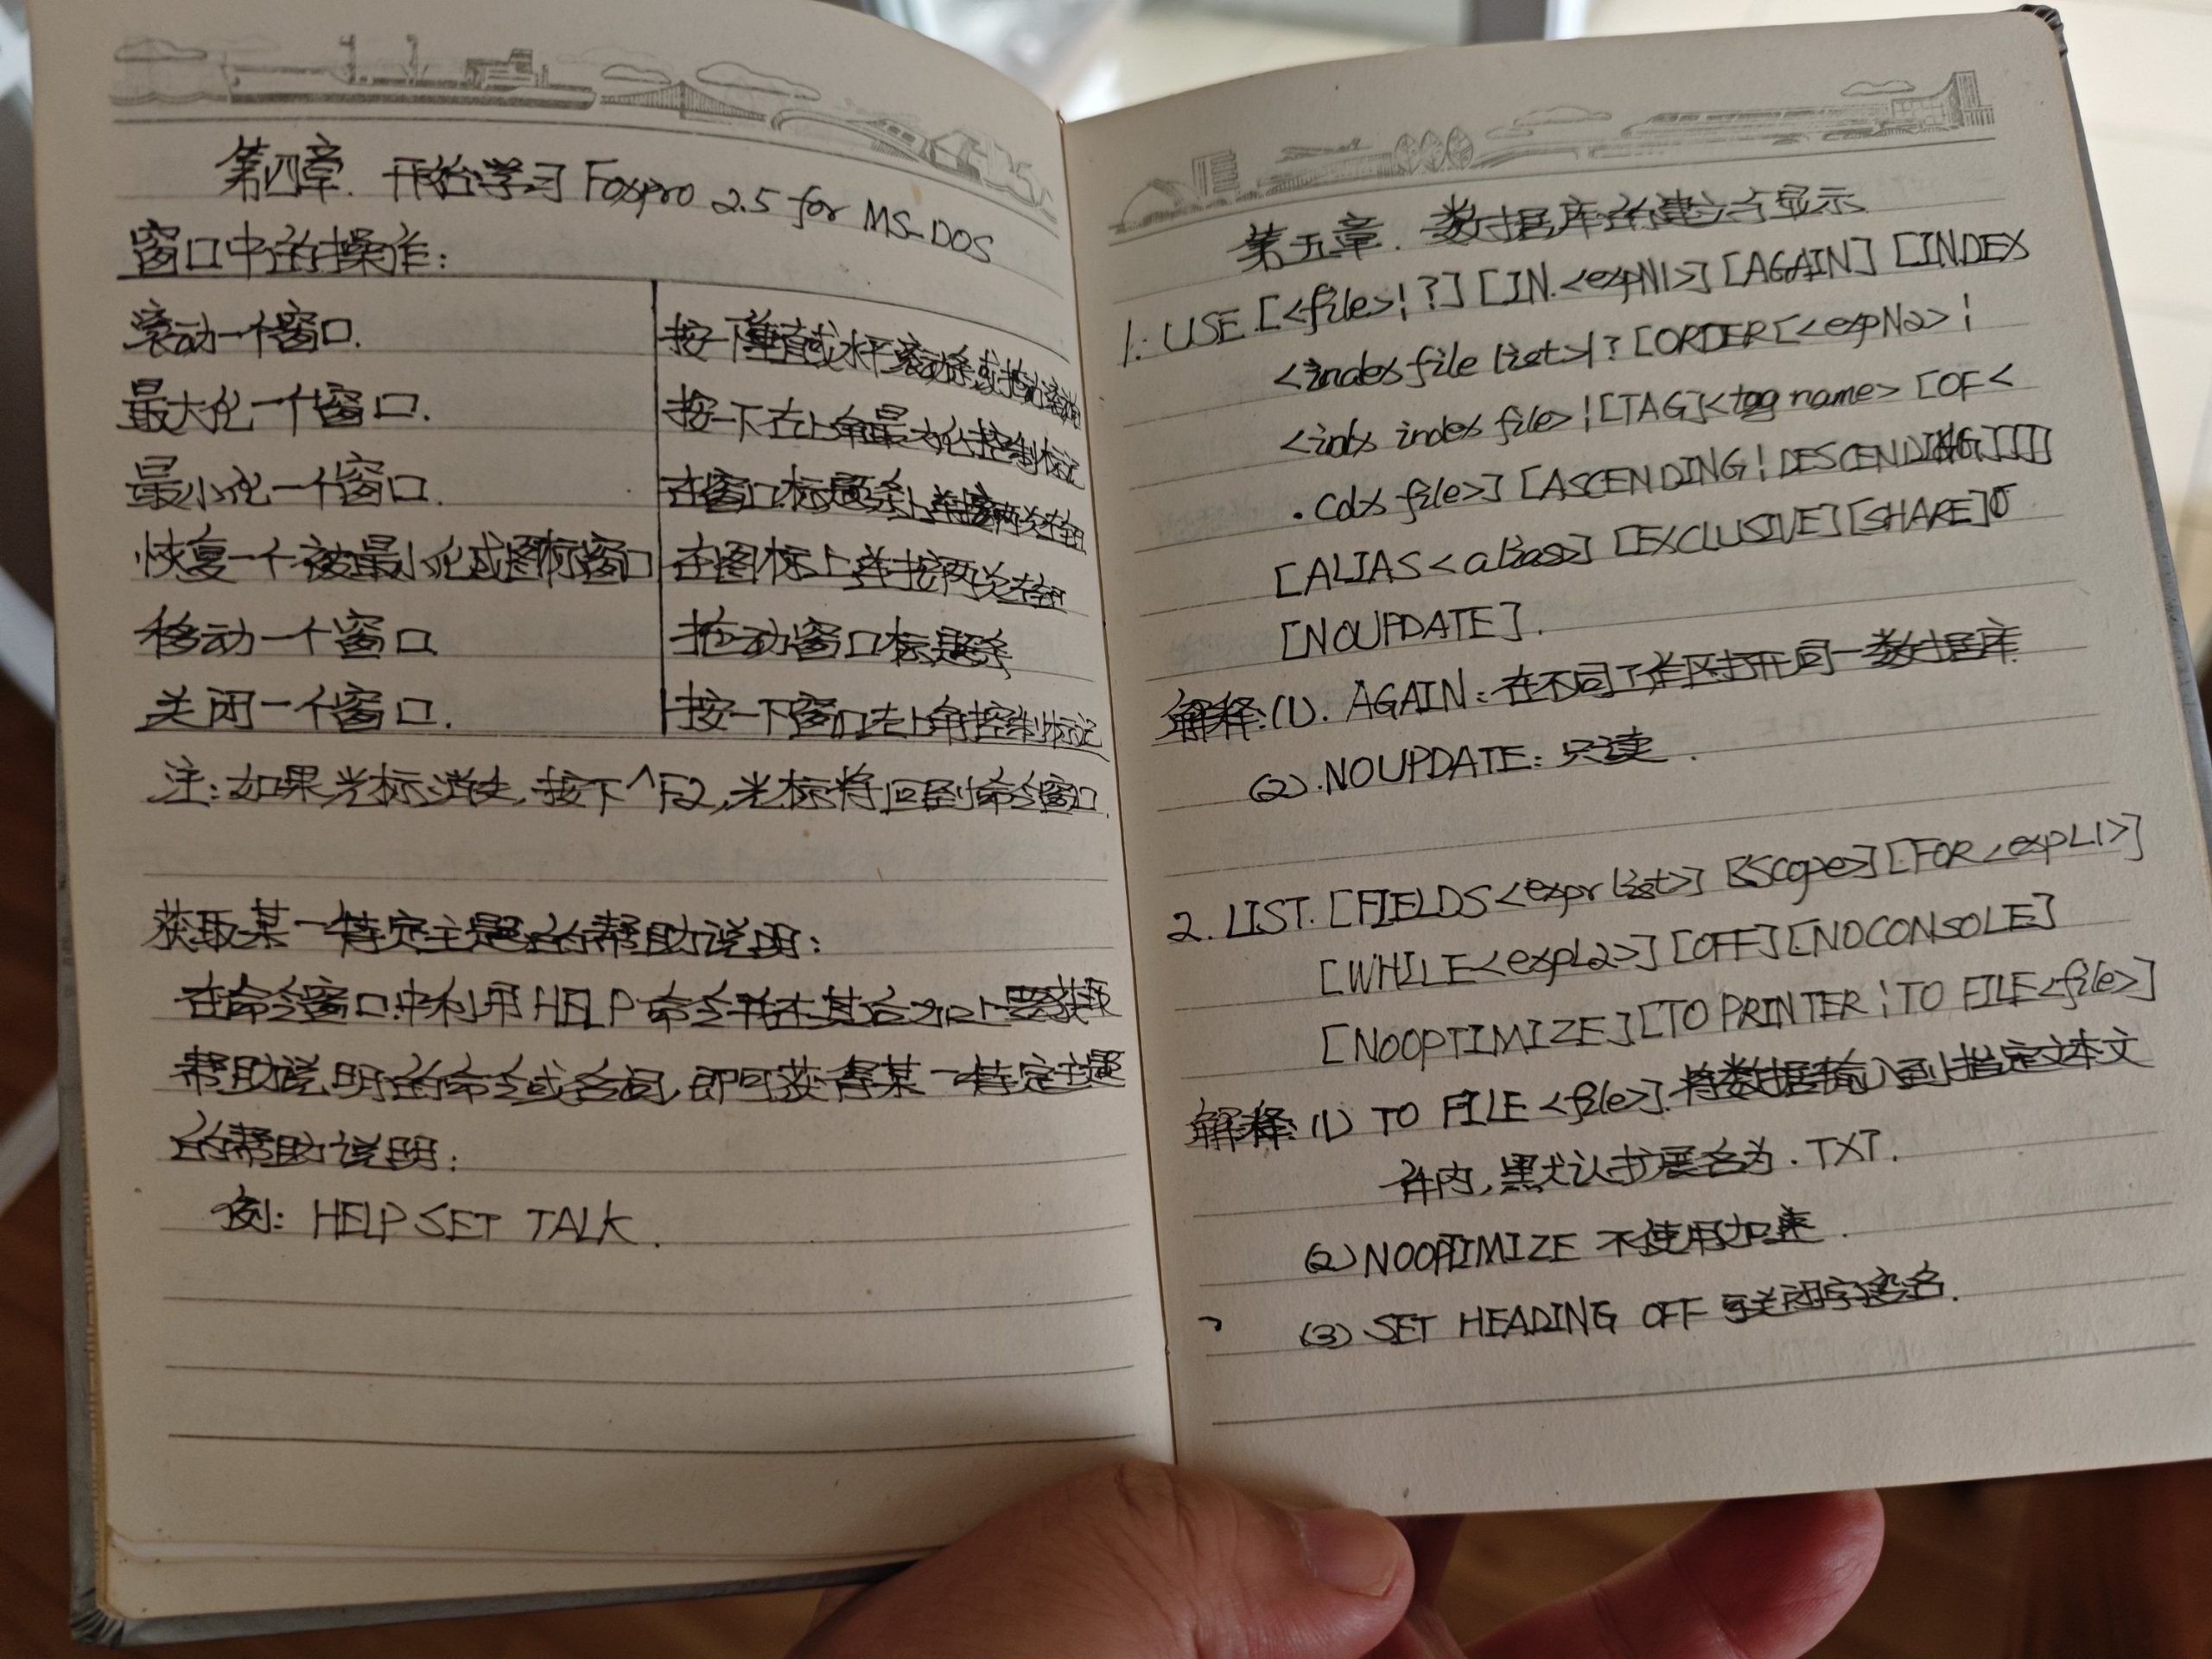 第四章. 开始学习Foxpro 2.5 for MS-DOS
窗口中的操作:
滚动一个窗口. 按一下垂直或水平滚动条或拖动滚动
最大化一个窗口. 按一下右上角最大化控制标记
最小化一个窗口. 在窗口标题条上连按两次左钮
恢复一个被最小化成图标窗口 在图标上连按两次左钮
移动一个窗口 拖动窗口标题条
关闭一个窗口. 按一下窗口左上角控制标记
注:如果光标消失,按下^F2,光标将回到命令窗口.
获取某一特定主题的帮助说明:
在命令窗口中利用HELP命令并在其后加上要获取
帮助说明的命令或名词,即可获得某一特定主题
的帮助说明:
例: HELP SET TALK.
第五章. 数据库的建立与显示
1. USE [<file>¦?] [IN.<expN1>] [AGAIN] [INDEX
<index file list>|? [ORDER[<expN2>¦
<indx index file>¦[TAG]<tag name> [OF<
.cdx file>] [ASCENDING¦DESCENDING]]]]
[ALIAS<alias>] [EXCLUSIVE][SHARE]
[NOUPDATE].
解释:(1). AGAIN:在不同工作区打开同一数据库.
(2).NOUPDATE: 只读.
2. LIST. [FIELDS<expr list>] [<Scope>][FOR<expL1>]
[WHILE<expL2>][OFF][NOCONSOLE]
[NOOPTIMIZE][TO PRINTER¦TO FILE<file>]
解释:(1) TO FILE<file>.将数据输入到指定文本文
件内,黑犬认扩展名为.TXT.
(2)NOOPTIMIZE 不使用加速.
(3) SET HEADING OFF 可关闭字段名.